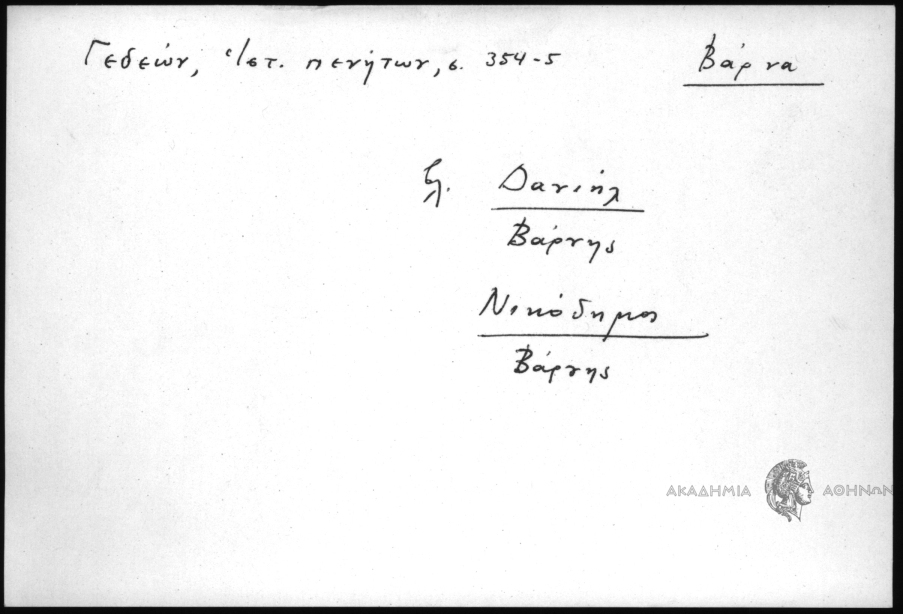 Γεδεών, Ἱστ. πενήτων, σ. 354-5 Βάρνα
βλ. Δανιήλ
Βάρνης
Νικόδημος
Βάρνης
ΑΚΑΔΗΜΙΑ ΑΘΗΝΩΝ